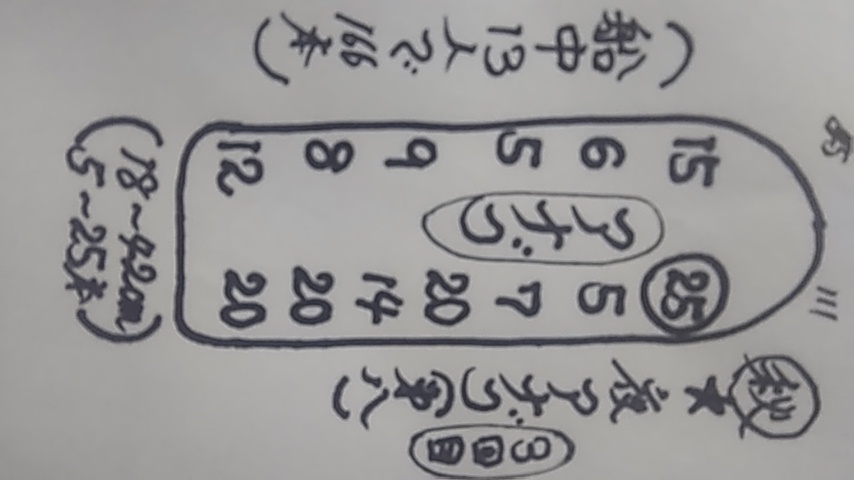 夜アナゴ
3回目
15 25
6 5
5 7
アナゴ
9 20
8 14
12 20
20
(船中13人で166本)
(18~42cm
5~25本)